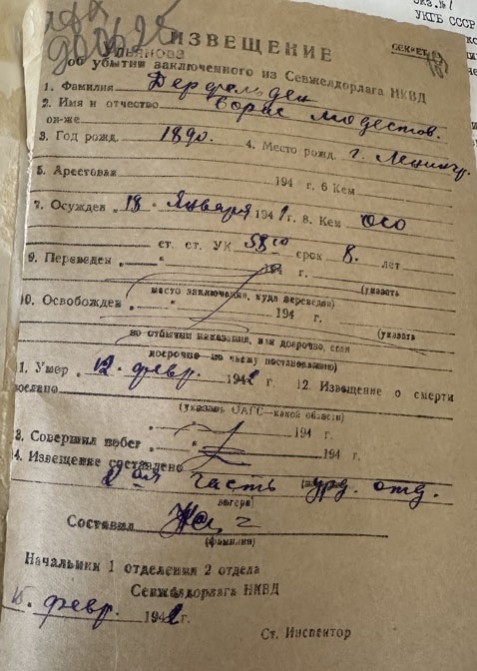 ИЗВЕЩЕНИЕ
СЕКРЕТНО
об убытии заключенного из Севжелдорлага НКВД
1. Фамилия Дерфельден
2. Имя и отчество Борис Модестов.
он-же
3. Год рожд. 1890. 4. Место рожд. г. Ленингр.
5. Арестован 194 г. 6 Кем
7. Осужден "18" Января 1941 г. 8. Кем ОСО
ст. ст. УК 58 10 срок 8. лет
9. Переведен " " 194 г. (указать
место заключения, куда переведен)
10. Освобожден " " 194 г. (указать
по отбытии наказания, или досрочно, если
досрочно по чьему постановлению)
11. Умер "12" февр. 1942 г 12. Извещение о смерти
послано
(указать ОАГС—какой области)
194 г.
13. Совершил побег " " 194 г.
14. Извещение составлено
2 ая часть урд. отд.
лагеря)
Составил
(фамилия)
Начальник 1 отделения 2 отдела
Севжелдорлага НКВД
15. февр. 1942 г.
Ст. Инспектор
УКГБ СССР